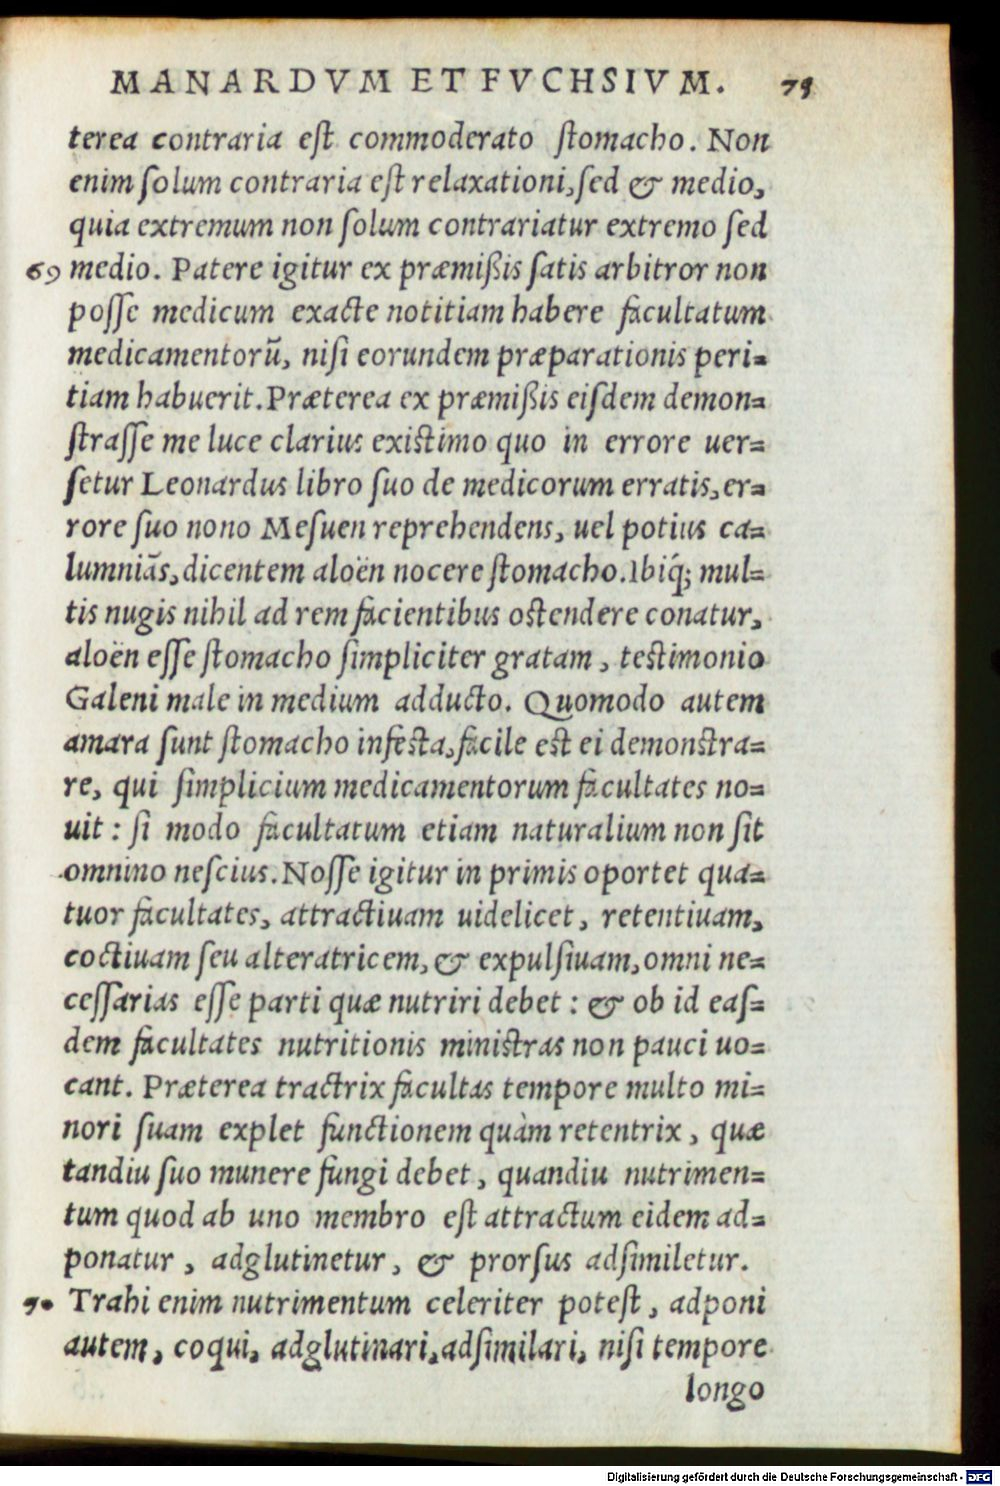 MANARDVM ET FVCHSIVM. 75
terea contraria eſt commoderato ſtomacho. Non
enim ſolum contraria eſt relaxationi, ſed & medio,
quia extremum non ſolum contrariatur extremo ſed
69 medio. Patere igitur ex præmißis ſatis arbitror non
poſſe medicum exacte notitiam habere facultatum
medicamentorũ, niſi eorundem præparationis peri=
tiam habuerit. Præterea ex præmißis eiſdem demon=
ſtraſſe me luce clarius existimo quo in errore uer=
ſetur Leonardus libro ſuo de medicorum erratis, er=
rore ſuo nono Meſuen reprehendens, uel potius ca=
lumniãs, dicentem aloën nocere ſtomacho. Ibiq́; mul=
tis nugis nihil ad rem facientibus ostendere conatur,
aloën eſſe ſtomacho ſimpliciter gratam, testimonio
Galeni male in medium adducto. Quomodo autem
amara ſunt ſtomacho infesta, facile est ei demonstra=
re, qui ſimplicium medicamentorum facultates no=
uit: ſi modo facultatum etiam naturalium non ſit
omnino neſcius. Noſſe igitur in primis oportet qua=
tuor facultates, attractiuam uidelicet, retentiuam,
coctiuam ſeu alteratricem, & expulſiuam, omni ne=
ceſſarias eſſe parti quæ nutriri debet: & ob id eaſ=
dem facultates nutritionis ministras non pauci uo=
cant. Præterea tractrix facultas tempore multo mi=
nori ſuam explet functionem quàm retentrix, quæ
tandiu ſuo munere fungi debet, quandiu nutrimen=
tum quod ab uno membro eſt attractum eidem ad=
ponatur, adglutinetur, & prorſus adſimiletur.
70 Trahi enim nutrimentum celeriter poteſt, adponi
autem, coqui, adglutinari, adſimilari, niſi tempore
longo
Digitalisierung gefördert durch die Deutsche Forschungsgemeinschaft - DFG